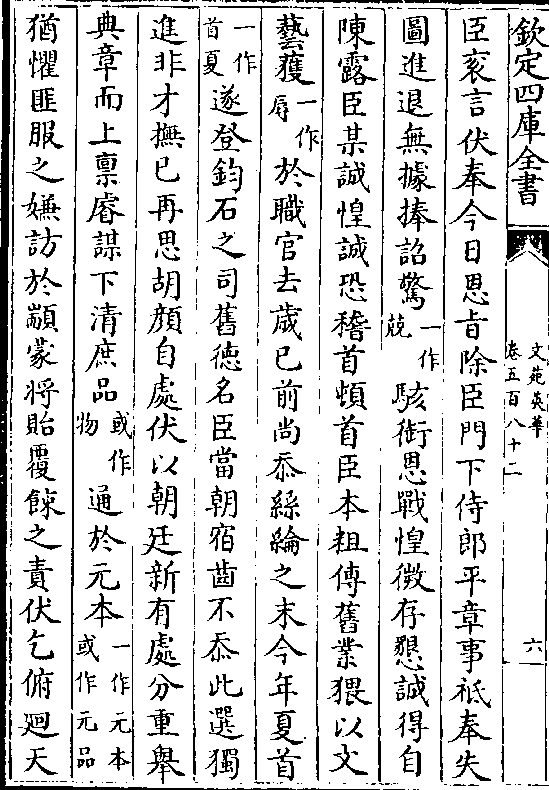 欽定四庫全書
文苑英華
卷五百八十二
六
臣衮言伏奉今日恩旨除臣門下侍郎平章事祗奉失
圖進退無據捧詔驚一作兢駭銜恩戰惶微存懇誠得自
陳露臣某誠惶誠恐稽首頓首臣本粗傳舊業猥以文
藝獲一作辱於職官去歳已前尚忝絲綸之末今年夏首
一作首夏遂登鈞石之司舊徳名臣當朝宿齒不忝此選獨
進非才撫已再思胡顔自處伏以朝廷新有處分重舉
典章而上禀睿謀下清庶品或作物通於元本一作元本或作元品
猶懼匪服之嫌訪於顓蒙将貽覆餗之責伏乞俯廻天